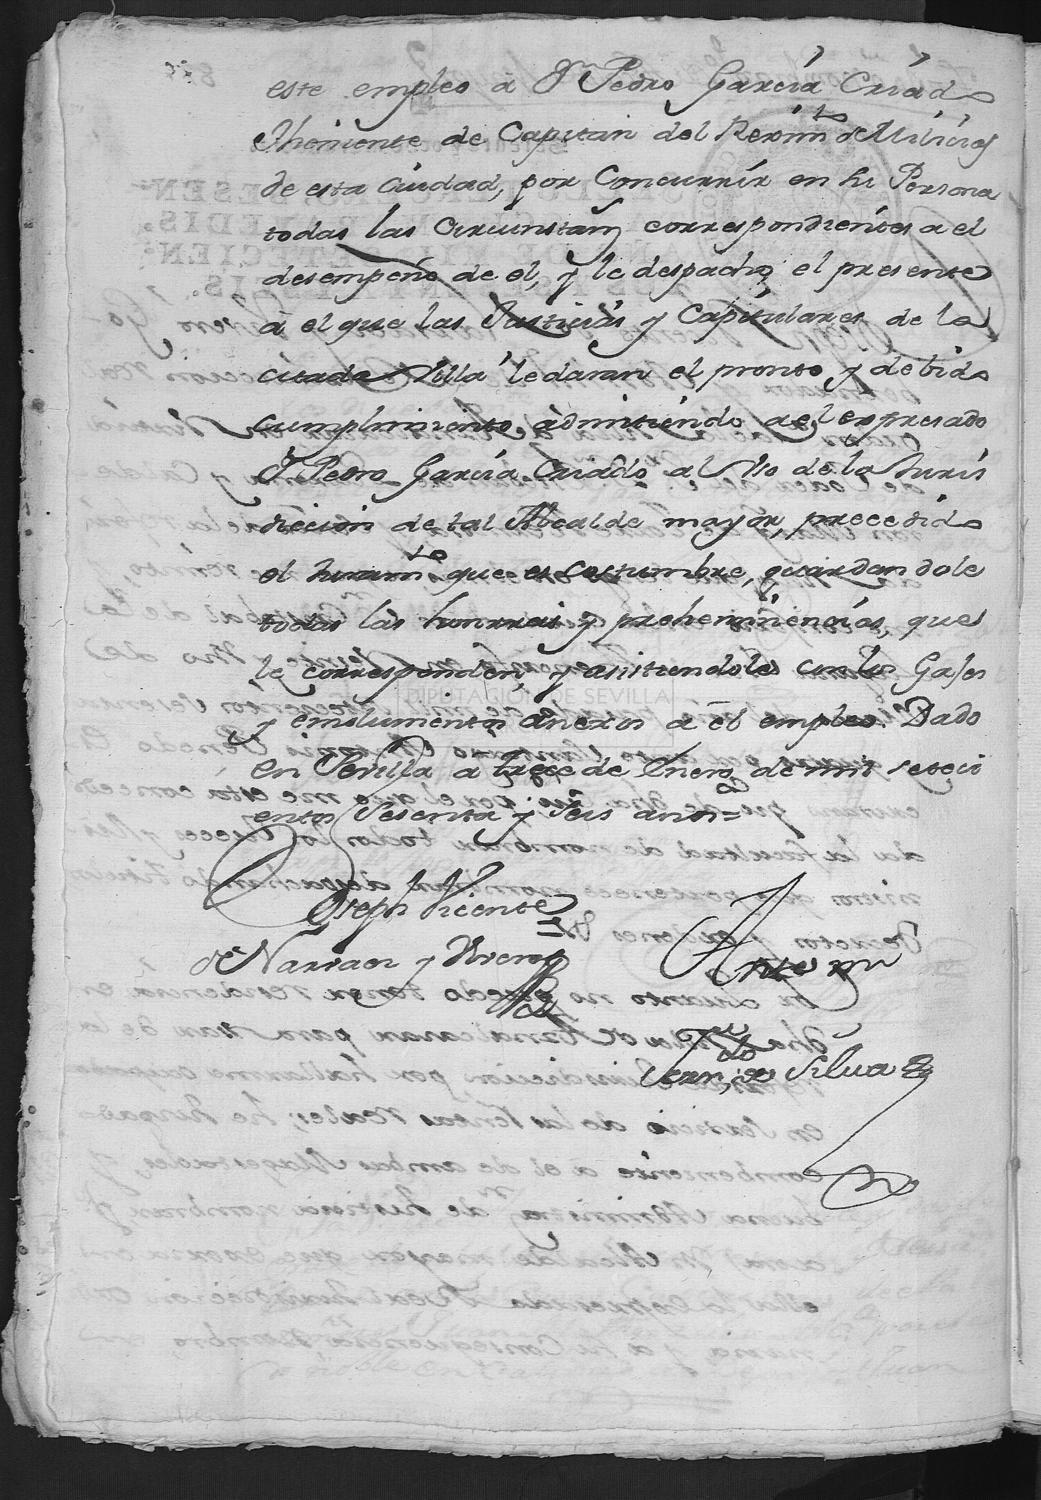 este empleo à Dn Pedro García Criado
Theniente de Capitan del Reximto de Milicias
de esta Ciudad, por Concurrir en su Persona
todas las Circunstans correspondientes a el
desempeño de el, y le despacho el presente
à el que las Justicias y Capitulares de la
citada Villa le daran el pronto y debido
cumplimiento admitiendo a el expresado
Dn Pedro García Criado al Uso de la Juris
diccion de tal Alcalde mayor, precedido
el Juramto que es costumbre, guardandole
todas las honrras y preheminencias, que
le corresponden, y asistiendole con los Gajes
y emolumentos anexos a el empleo. Dado
en Sevilla a trece de Enero de mil seteci
entos Sesenta y Seis años=
Joseph Vicente
de Narvaez y
Ante mi
de Silva
DIPUTACIÓN DE SEVILLA